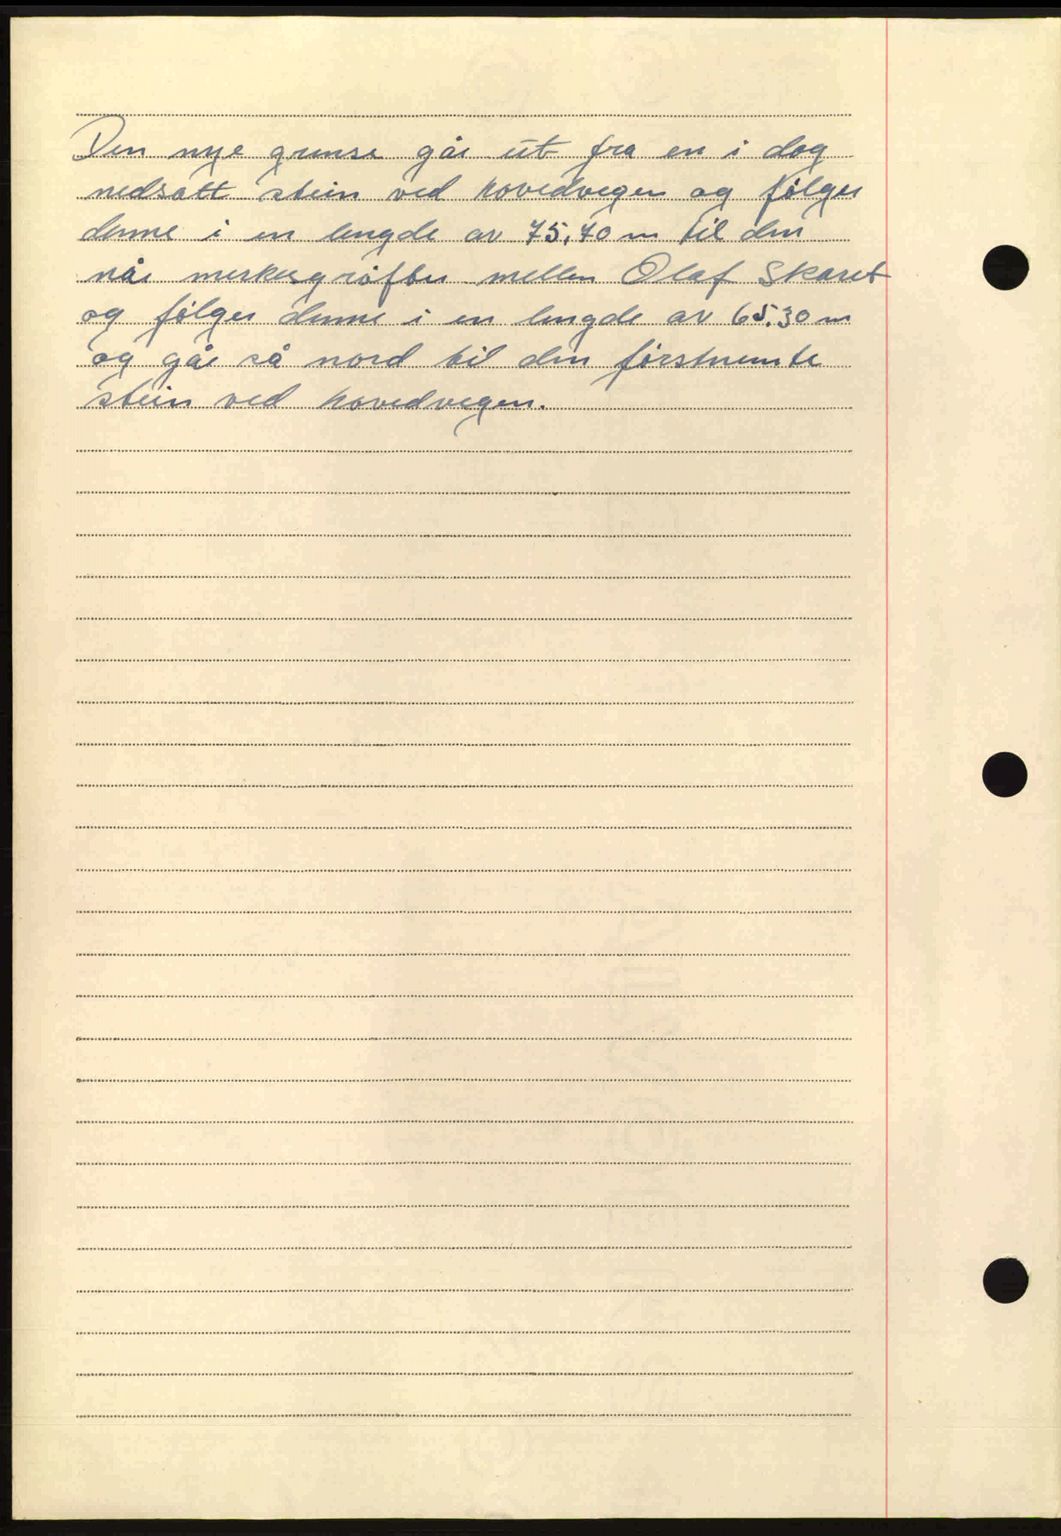 Den nye grense går ut fra en i dag
nedsatt stein ved hovedvegen og følger
denne i en lengde av 75,70 m til den
når merkesgrøften mellem Olaf Skaret
og følger denne i en lengde av 65,30 m
og går så nord til den førstnemte
stein ved hovedvegen.